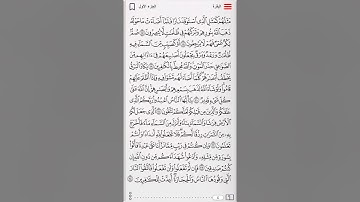 البقرة
الجزء الأول
مَثَلُهُمْ كَمَثَلِ ٱلَّذِى ٱسْتَوْقَدَ نَارًا فَلَمَّآ أَضَآءَتْ مَا حَوْلَهُۥ
ذَهَبَ ٱللَّهُ بِنُورِهِمْ وَتَرَكَهُمْ فِى ظُلُمَٰتٍ لَّا يُبْصِرُونَ ١٧
صُمٌّۢ بُكْمٌ عُمْىٌ فَهُمْ لَا يَرْجِعُونَ ١٨ أَوْ كَصَيِّبٍ مِّنَ ٱلسَّمَآءِ فِيهِ
ظُلُمَٰتٌ وَرَعْدٌ وَبَرْقٌ يَجْعَلُونَ أَصَٰبِعَهُمْ فِىٓ ءَاذَانِهِم مِّنَ
ٱلصَّوَٰعِقِ حَذَرَ ٱلْمَوْتِ وَٱللَّهُ مُحِيطٌۢ بِٱلْكَٰفِرِينَ ١٩ يَكَادُ ٱلْبَرْقُ
يَخْطَفُ أَبْصَٰرَهُمْ كُلَّمَآ أَضَآءَ لَهُم مَّشَوْا۟ فِيهِ وَإِذَآ أَظْلَمَ عَلَيْهِمْ
قَامُوا۟ وَلَوْ شَآءَ ٱللَّهُ لَذَهَبَ بِسَمْعِهِمْ وَأَبْصَٰرِهِمْ إِنَّ ٱللَّهَ عَلَىٰ
كُلِّ شَىْءٍ قَدِيرٌ ٢٠ يَٰٓأَيُّهَا ٱلنَّاسُ ٱعْبُدُوا۟ رَبَّكُمُ ٱلَّذِى
خَلَقَكُمْ وَٱلَّذِينَ مِن قَبْلِكُمْ لَعَلَّكُمْ تَتَّقُونَ ٢١ ٱلَّذِى جَعَلَ لَكُمُ
ٱلْأَرْضَ فِرَٰشًا وَٱلسَّمَآءَ بِنَآءً وَأَنزَلَ مِنَ ٱلسَّمَآءِ مَآءً فَأَخْرَجَ
بِهِۦ مِنَ ٱلثَّمَرَٰتِ رِزْقًا لَّكُمْ فَلَا تَجْعَلُوا۟ لِلَّهِ أَندَادًا وَأَنتُمْ
تَعْلَمُونَ ٢٢ وَإِن كُنتُمْ فِى رَيْبٍ مِّمَّا نَزَّلْنَا عَلَىٰ عَبْدِنَا فَأْتُوا۟
بِسُورَةٍ مِّن مِّثْلِهِۦ وَٱدْعُوا۟ شُهَدَآءَكُم مِّن دُونِ ٱللَّهِ إِن
كُنتُمْ صَٰدِقِينَ ٢٣ فَإِن لَّمْ تَفْعَلُوا۟ وَلَن تَفْعَلُوا۟ فَٱتَّقُوا۟ ٱلنَّارَ
ٱلَّتِى وَقُودُهَا ٱلنَّاسُ وَٱلْحِجَارَةُ أُعِدَّتْ لِلْكَٰفِرِينَ ٢٤